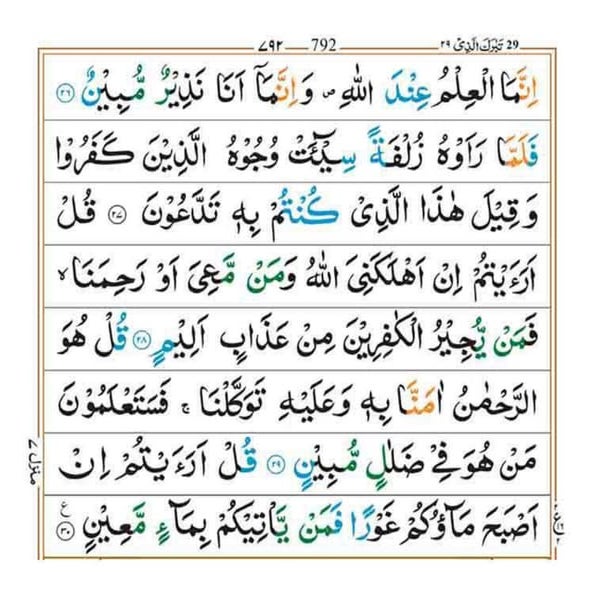 ٧٩٢ — 792 تَبٰرَكَ الَّذِیْ ٢٩ 29
اِنَّمَا الْعِلْمُ عِنْدَ اللّٰهِ ۪ وَاِنَّمَاۤ اَنَا نَذِیْرٌ مُّبِیْنٌ ﴿٢٦﴾
فَلَمَّا رَاَوْهُ زُلْفَةً سِیْٓـَٔتْ وُجُوْهُ الَّذِیْنَ كَفَرُوْا
وَقِیْلَ هٰذَا الَّذِیْ كُنْتُمْ بِهٖ تَدَّعُوْنَ ﴿٢٧﴾ قُلْ
اَرَءَیْتُمْ اِنْ اَهْلَكَنِیَ اللّٰهُ وَمَنْ مَّعِیَ اَوْ رَحِمَنَا ۙ
فَمَنْ یُّجِیْرُ الْكٰفِرِیْنَ مِنْ عَذَابٍ اَلِیْمٍ ﴿٢٨﴾ قُلْ هُوَ
الرَّحْمٰنُ اٰمَنَّا بِهٖ وَعَلَیْهِ تَوَكَّلْنَا ۚ فَسَتَعْلَمُوْنَ
مَنْ هُوَ فِیْ ضَلٰلٍ مُّبِیْنٍ ﴿٢٩﴾ قُلْ اَرَءَیْتُمْ اِنْ
اَصْبَحَ مَآؤُكُمْ غَوْرًا فَمَنْ یَّاْتِیْكُمْ بِمَآءٍ مَّعِیْنٍ ﴿٣٠﴾ ع
منزل ٧